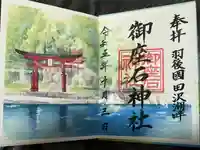 奉拝 羽後國田沢湖畔
御座石神社
令和五年 月三日